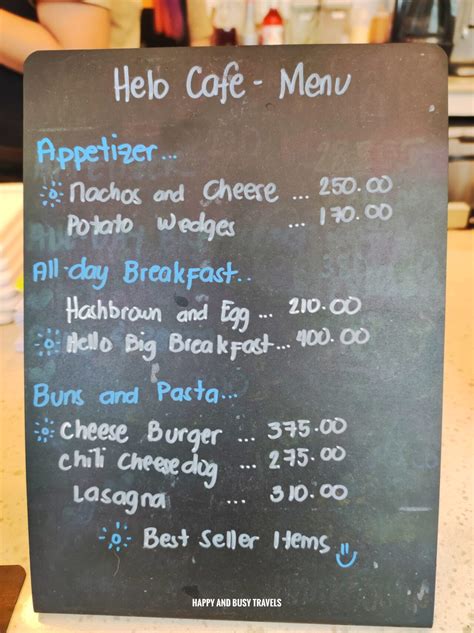 Helo Cafe - Menu
Appetizer...
Nachos and Cheese ... 250.00
Potato Wedges ... 170.00
All-day Breakfast..
Hashbrown and Egg ... 210.00
Hello Big Breakfast... 400.00
Buns and Pasta...
Cheese Burger ... 375.00
Chili Cheesedog ... 275.00
Lasagna ... 310.00
Best Seller Items
HAPPY AND BUSY TRAVELS